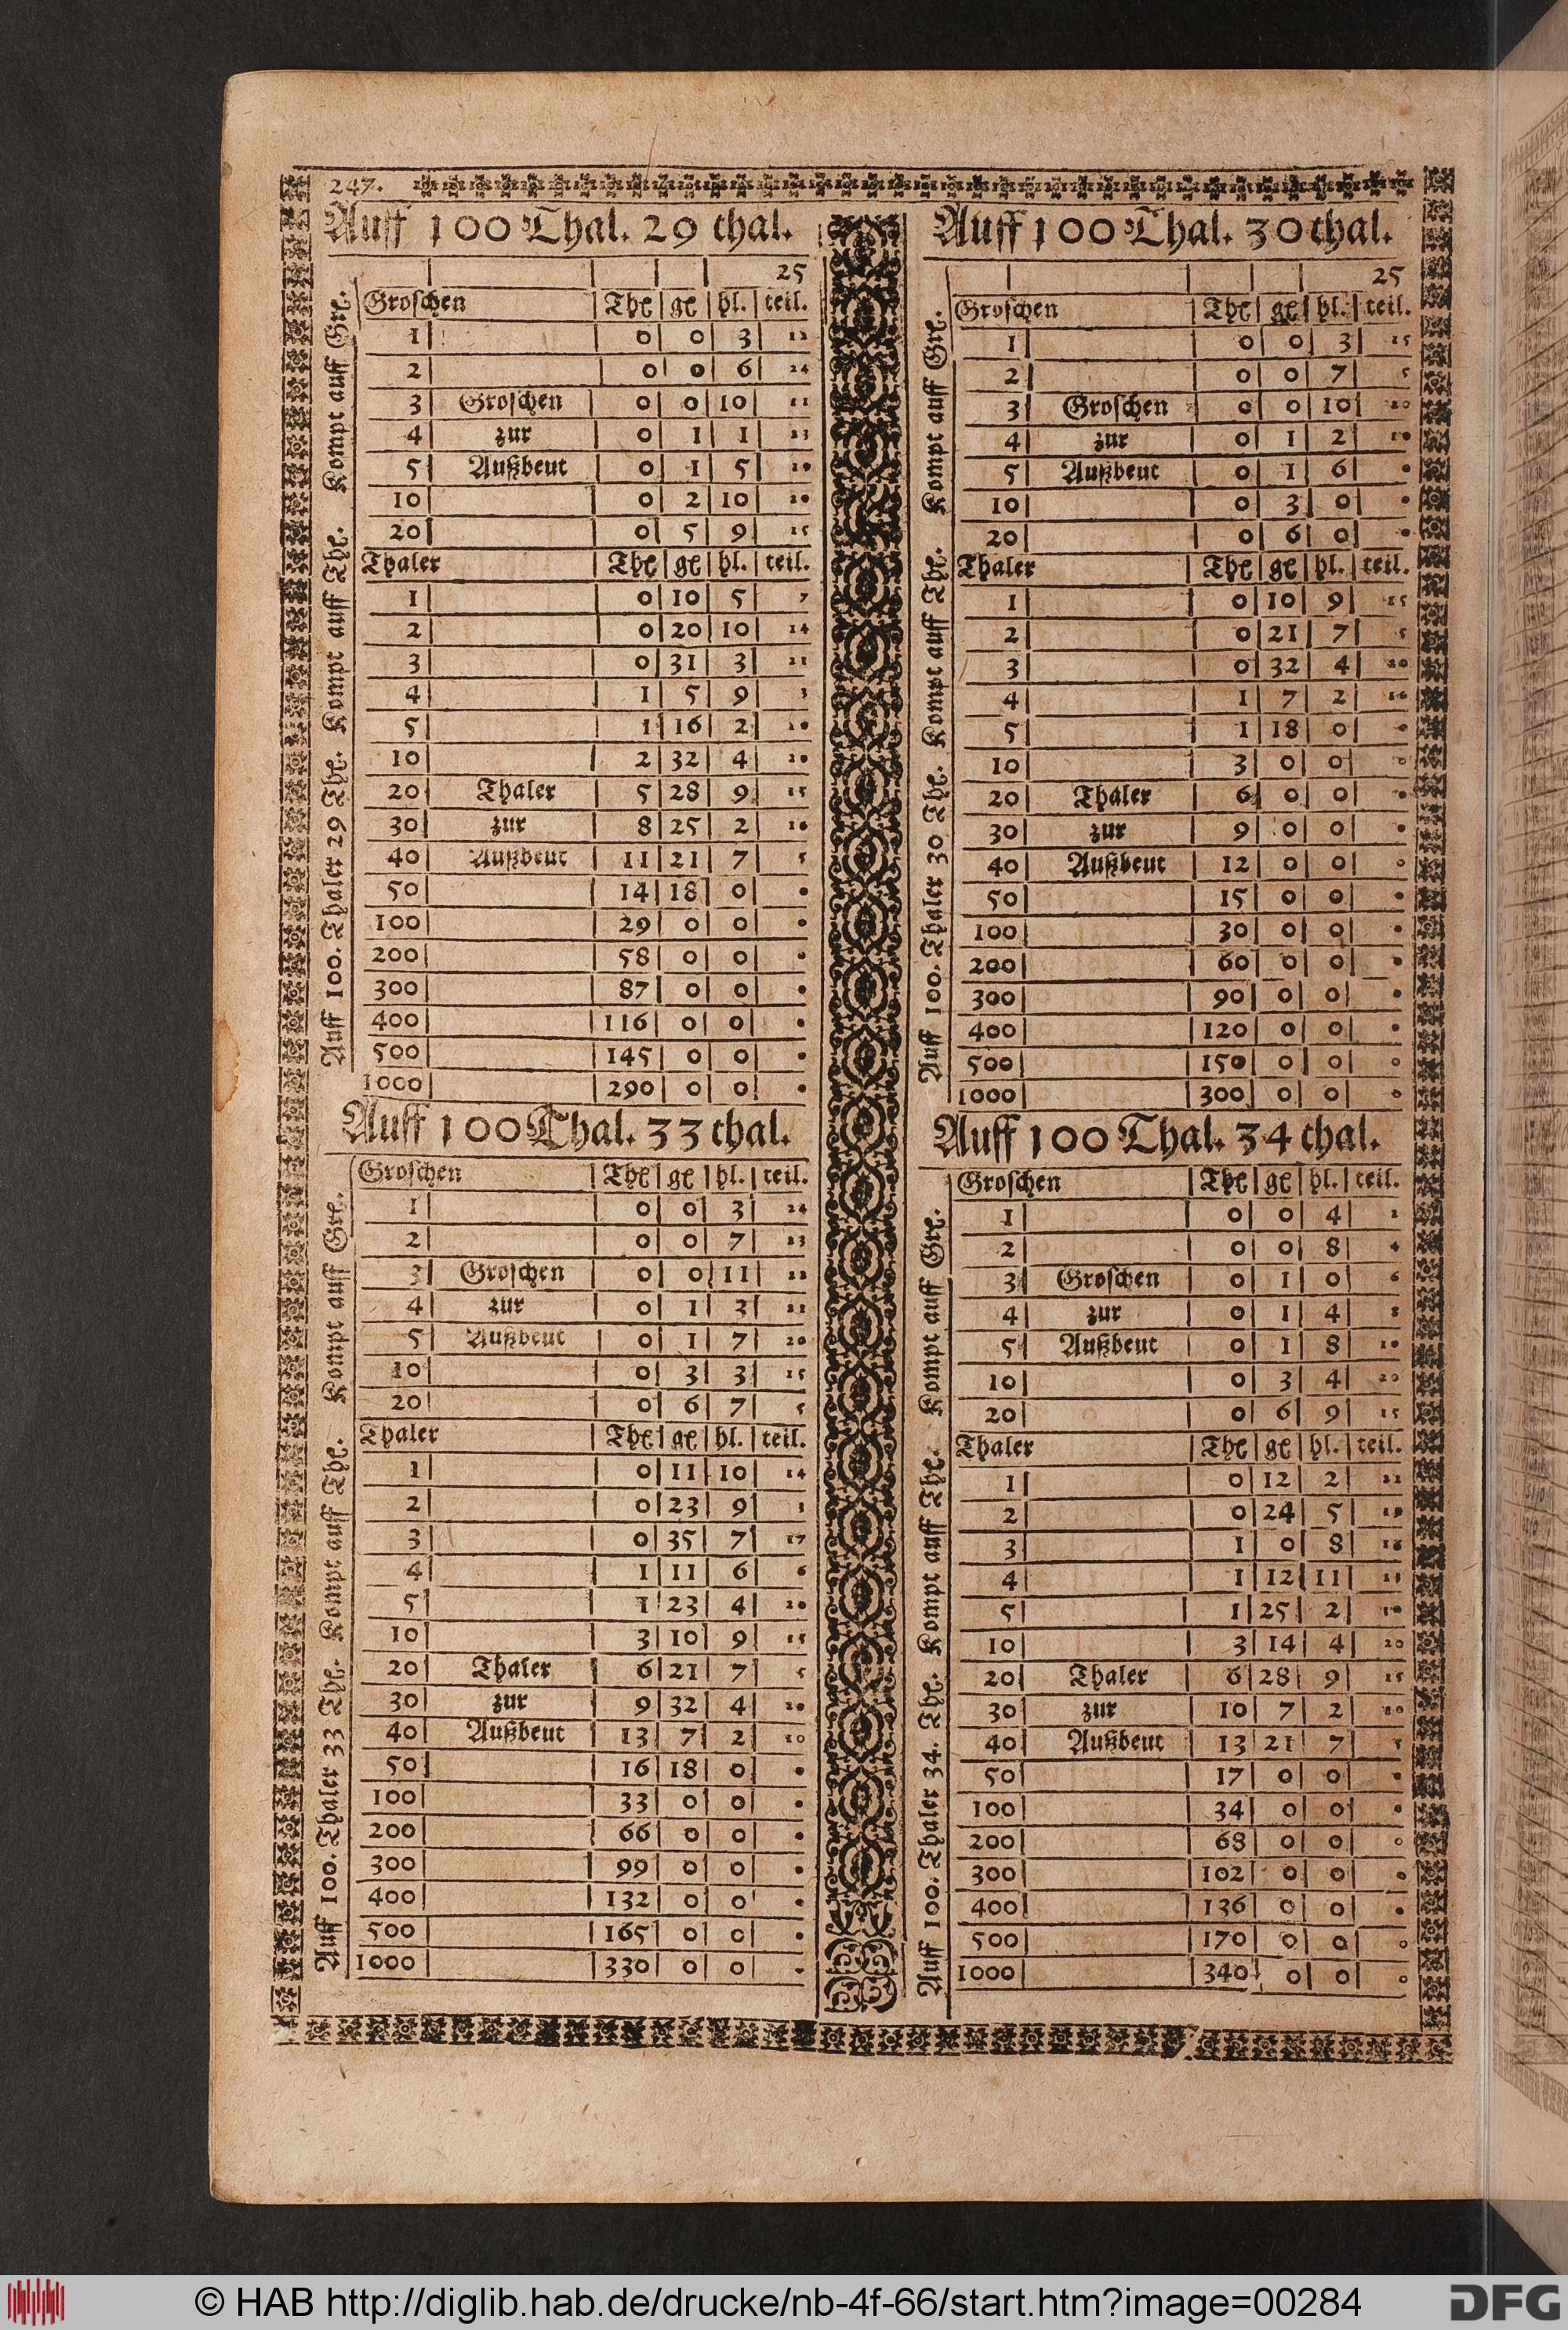 247.
Auff 100 Thal. 29 thal.
25
Groschen Thl gl hl. teil.
1 0 0 3 12
2 0 0 6 24
3 Groschen 0 0 10 11
4 zur 0 1 1 23
5 Außbeut 0 1 5 10
10 0 2 10 20
20 0 5 9 15
Thaler Thl gl hl. teil.
1 0 10 5 7
2 0 20 10 14
3 0 31 3 21
4 1 5 9 3
5 1 16 2 10
10 2 32 4 20
20 Thaler 5 28 9 15
30 zur 8 25 2 10
40 Außbeut 11 21 7 5
50 14 18 0 0
100 29 0 0 0
200 58 0 0 0
300 87 0 0 0
400 116 0 0 0
500 145 0 0 0
1000 290 0 0 0
Auff 100. Thaler 29 Thl. Kompt auff Thl. Kompt auff Grl.
Auff 100 Thal. 33 thal.
Groschen Thl gl hl. teil.
1 0 0 3 24
2 0 0 7 23
3 Groschen 0 0 11 22
4 zur 0 1 3 21
5 Außbeut 0 1 7 20
10 0 3 3 15
20 0 6 7 5
Thaler Thl gl hl. teil.
1 0 11 10 14
2 0 23 9 3
3 0 35 7 17
4 1 11 6 6
5 1 23 4 20
10 3 10 9 15
20 Thaler 6 21 7 5
30 zur 9 32 4 20
40 Außbeut 13 7 2 10
50 16 18 0 0
100 33 0 0 0
200 66 0 0 0
300 99 0 0 0
400 132 0 0 0
500 165 0 0 0
1000 330 0 0 0
Auff 100. Thaler 33 Thl. Kompt auff Thl. Kompt auff Grl.
Auff 100 Thal. 30 thal.
25
Groschen Thl gl hl. teil.
1 0 0 3 15
2 0 0 7 5
3 Groschen 0 0 10 20
4 zur 0 1 2 10
5 Außbeut 0 1 6 0
10 0 3 0 0
20 0 6 0 0
Thaler Thl gl hl. teil.
1 0 10 9 15
2 0 21 7 5
3 0 32 4 20
4 1 7 2 10
5 1 18 0 0
10 3 0 0 0
20 Thaler 6 0 0 0
30 zur 9 0 0 0
40 Außbeut 12 0 0 0
50 15 0 0 0
100 30 0 0 0
200 60 0 0 0
300 90 0 0 0
400 120 0 0 0
500 150 0 0 0
1000 300 0 0 0
Auff 100. Thaler 30 Thl. Kompt auff Thl. Kompt auff Grl.
Auff 100 Thal. 34 thal.
Groschen Thl gl hl. teil.
1 0 0 4 2
2 0 0 8 4
3 Groschen 0 1 0 6
4 zur 0 1 4 8
5 Außbeut 0 1 8 10
10 0 3 4 20
20 0 6 9 15
Thaler Thl gl hl. teil.
1 0 12 2
2 0 24 5 19
3 1 0 8 16
4 1 12 11
5 1 25 2 10
10 3 14 4 20
20 Thaler 6 28 9 15
30 zur 10 7 2 10
40 Außbeut 13 21 7 5
50 17 0 0 0
100 34 0 0 0
200 68 0 0 0
300 102 0 0 0
400 136 0 0 0
500 170 0 0 0
1000 340 0 0 0
Auff 100. Thaler 34. Thl. Kompt auff Thl. Kompt auff Grl.
© HAB http://diglib.hab.de/drucke/nb-4f-66/start.htm?image=00284
DFG